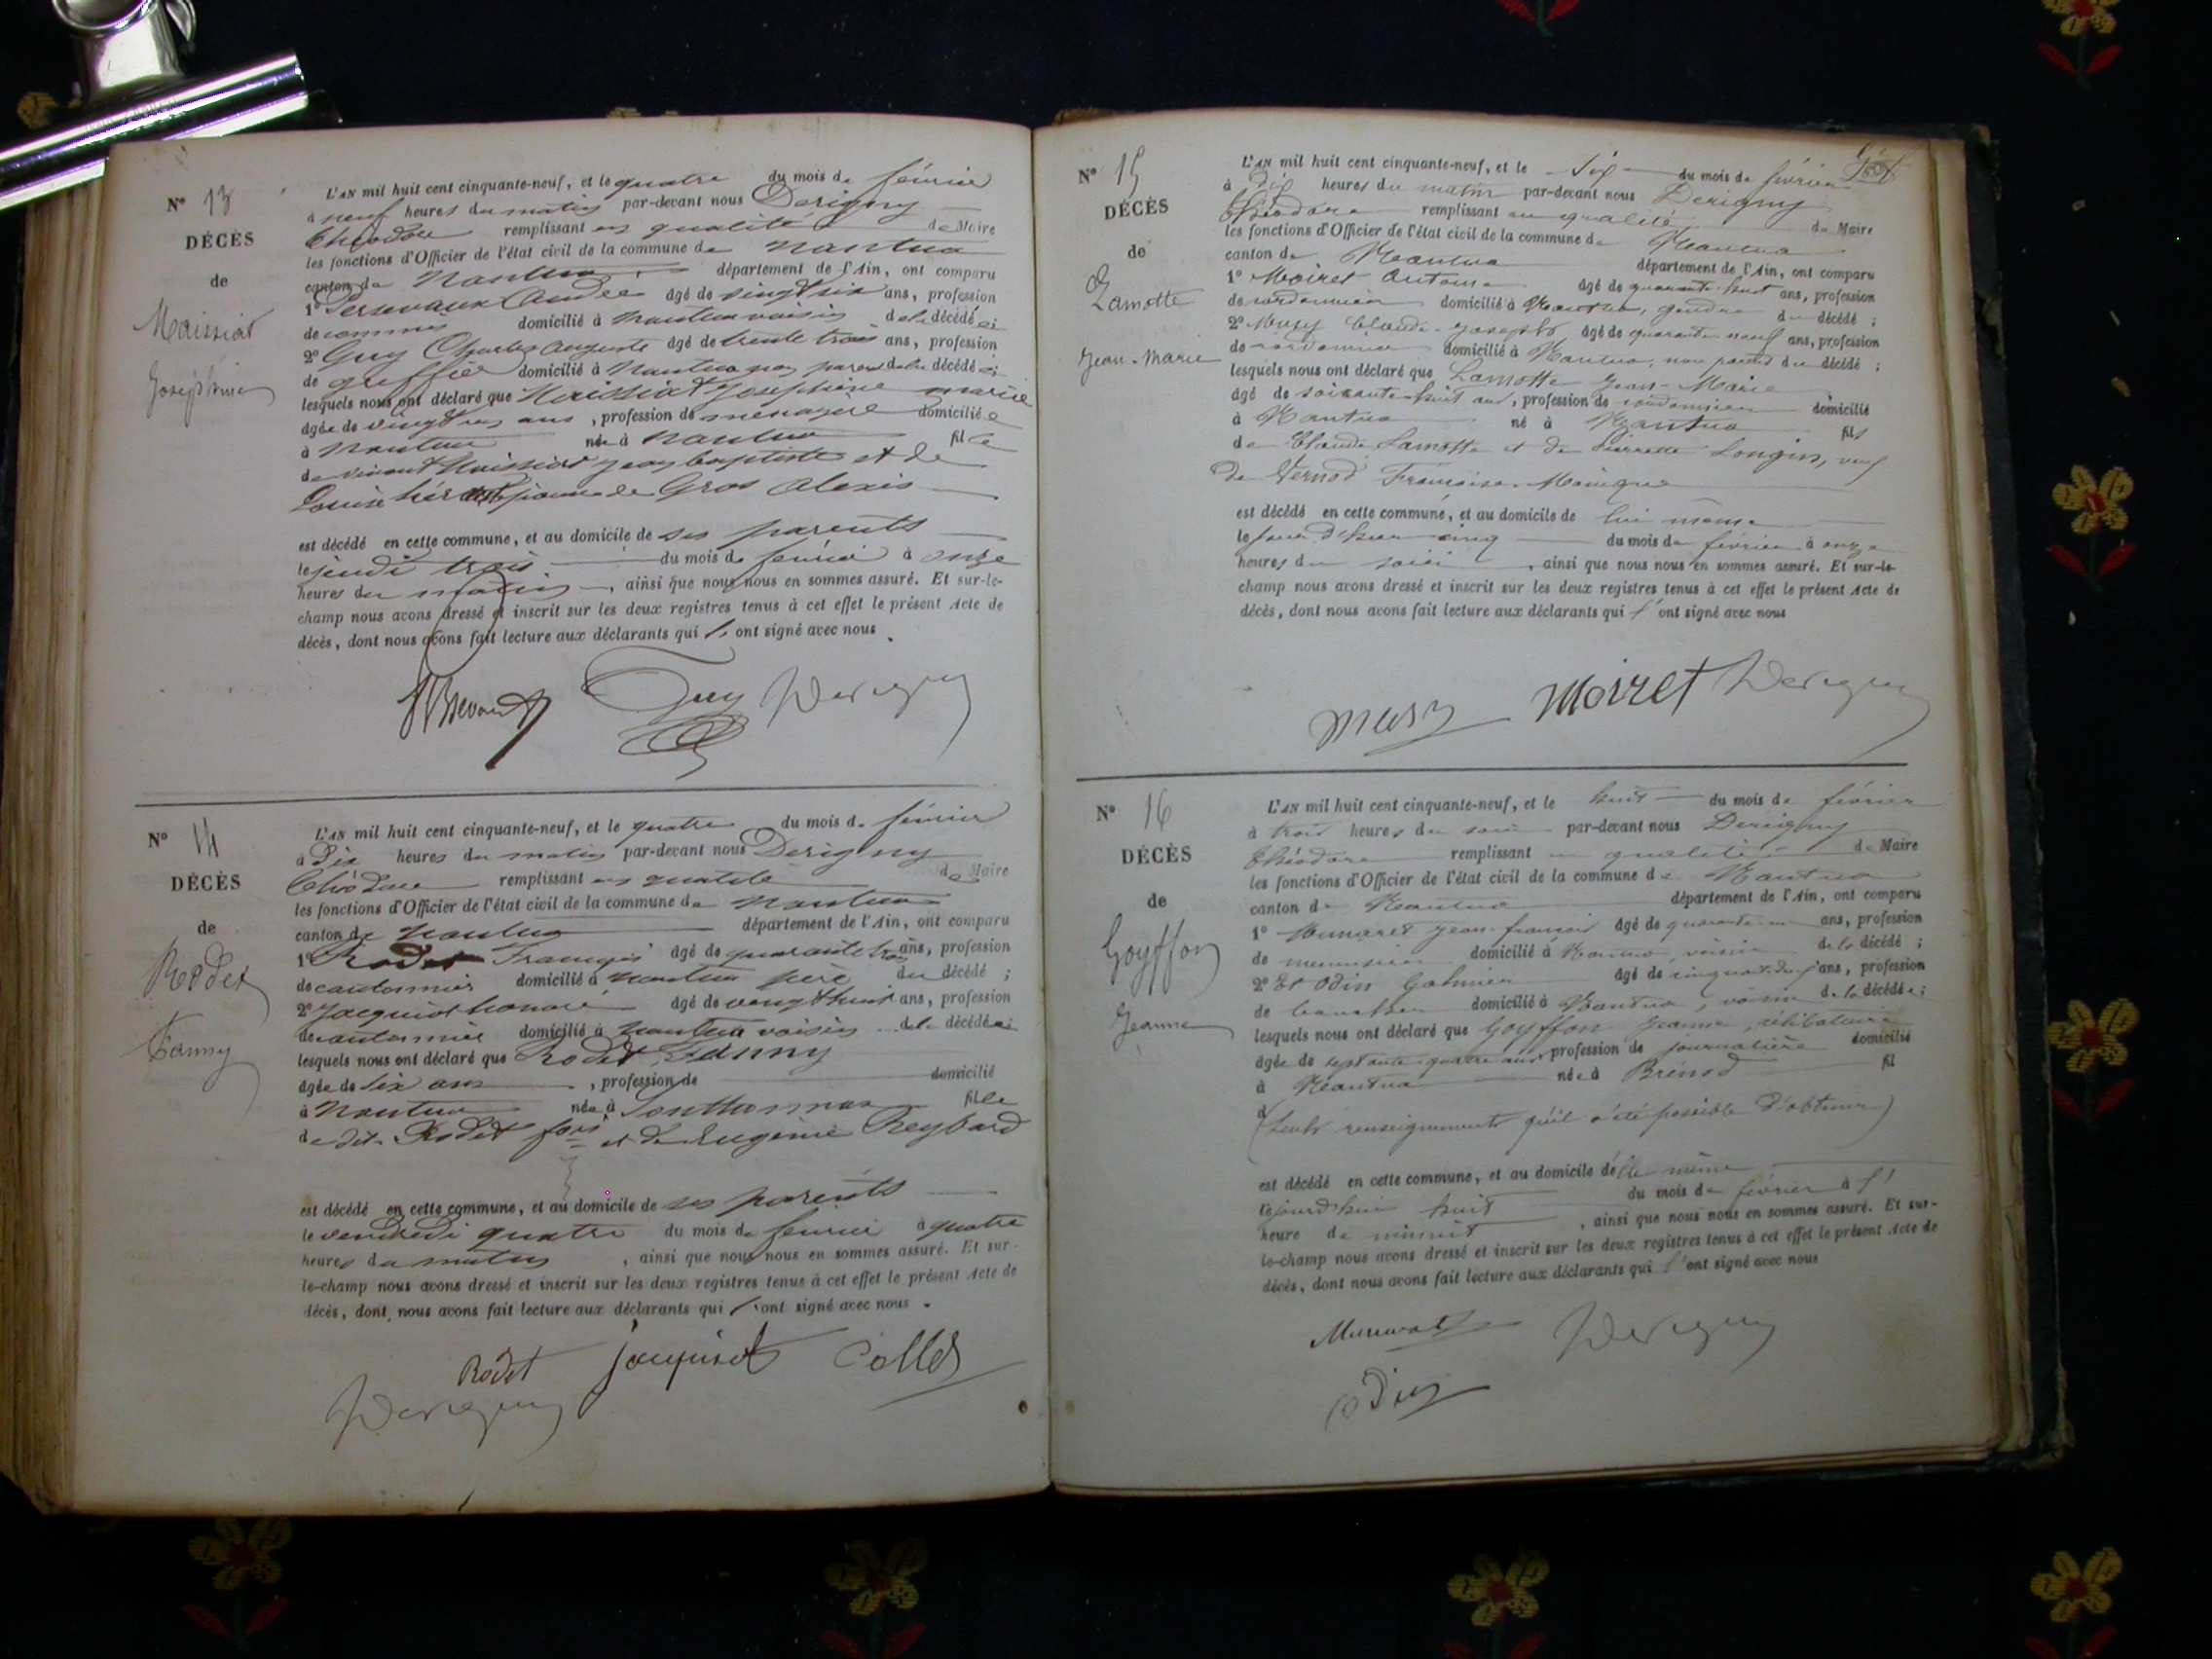 N° 13
DÉCÈS
de
Maissiat
Joséphine
L'AN mil huit cent cinquante-neuf, et le quatre du mois de février
à neuf heures du matin par-devant nous Derigny
Théodore remplissant en qualité de Maire
les fonctions d'Officier de l'état civil de la commune de Nantua
canton de Nantua département de l'Ain, ont comparu
1° agé de vingt six ans, profession
de commis domicilié à Nantua voisin de la décédée;
2° Guy Charles Auguste agé de trente trois ans, profession
de greffier domicilié à Nantua non parent de la décédée;
lesquels nous ont déclaré que Maissiat Joséphine marie
agée de vingt ans, profession de ménagère domiciliée
à Nantua née à Nantua fille
de vivant Maissiat Jean baptiste et de
Louise épouse de Gros Alexis
est décédé en cette commune, et au domicile de ses parents
le jeudi trois du mois de février à onze
heures du matin, ainsi que nous nous en sommes assuré. Et sur-le-
champ nous avons dressé et inscrit sur les deux registres tenus à cet effet le présent Acte de
décès, dont nous avons fait lecture aux déclarants qui l'ont signé avec nous.
Guy Derigny
N° 14
DÉCÈS
de
Rodet
Fanny
L'AN mil huit cent cinquante-neuf, et le quatre du mois de février
à Dix heures du matin par-devant nous Derigny
Théodore remplissant en qualité de Maire
les fonctions d'Officier de l'état civil de la commune de Nantua
canton de Nantua département de l'Ain, ont comparu
1° Rodet François agé de quarante trois ans, profession
de cantonnier domicilié à Nantua père du décédé;
2° Jacquiot honoré agé de vingt huit ans, profession
de cantonnier domicilié à Nantua voisin de la décédée;
lesquels nous ont déclaré que Rodet Fanny
agée de six ans, profession de domicilié
à Nantua née à Sonthonnax fille
de dit Rodet fois et de Eugénie Reybard
est décédé en cette commune, et au domicile de ses parents
le vendredi quatre du mois de février à quatre
heures du matin, ainsi que nous nous en sommes assuré. Et sur-
le-champ nous avons dressé et inscrit sur les deux registres tenus à cet effet le présent Acte de
décès, dont nous avons fait lecture aux déclarants qui l'ont signé avec nous.
Rodet Jacquiot Collet
Derigny
N° 15
DÉCÈS
de
Lamotte
Jean-Marie
L'AN mil huit cent cinquante-neuf, et le Six du mois de février
à Dix heures du matin par-devant nous Derigny
Théodore remplissant en qualité de Maire
les fonctions d'Officier de l'état civil de la commune de Nantua
canton de Nantua département de l'Ain, ont comparu
1° Moiret Antoine agé de quarante-huit ans, profession
de cordonnier domicilié à Nantua, gendre du décédé;
2° Musy Claude-Joseph agé de quarante neuf ans, profession
de cordonnier domicilié à Nantua, non parent du décédé;
lesquels nous ont déclaré que Lamotte Jean-Marie
agé de soixante-huit ans, profession de cordonnier domicilié
à Nantua né à Nantua fils
de Claude Lamotte et de Pierrette Longin, veuf
de Vernod Françoise-Monique
est décédé en cette commune, et au domicile de lui même
le jour d'hier cinq du mois de février à onze
heures du soir, ainsi que nous nous en sommes assuré. Et sur-le-
champ nous avons dressé et inscrit sur les deux registres tenus à cet effet le présent Acte de
décès, dont nous avons fait lecture aux déclarants qui l'ont signé avec nous
Musy Moiret Derigny
N° 16
DÉCÈS
de
Goyffon
Jeanne
L'AN mil huit cent cinquante-neuf, et le huit du mois de février
à trois heures du soir par-devant nous Derigny
Théodore remplissant en qualité de Maire
les fonctions d'Officier de l'état civil de la commune de Nantua
canton de Nantua département de l'Ain, ont comparu
1° Munaret Jean-françois agé de quarante-un ans, profession
de menuisier domicilié à Nantua, voisin de la décédée;
2° Et Odin agé de ans, profession
de domicilié à Nantua, voisin de la décédée;
lesquels nous ont déclaré que Goyffon Jeanne, célibataire
agée de septante-quatre ans profession de journalière domicilié
à Nantua née à Brénod fil
d
(Seuls renseignements qu'il a été possible d'obtenir)
est décédé en cette commune, et au domicile d'elle même
le jourd'hui huit du mois de février à l'
heure de minuit, ainsi que nous nous en sommes assuré. Et sur-
le-champ nous avons dressé et inscrit sur les deux registres tenus à cet effet le présent Acte de
décès, dont nous avons fait lecture aux déclarants qui l'ont signé avec nous
Munaret Derigny
Odin